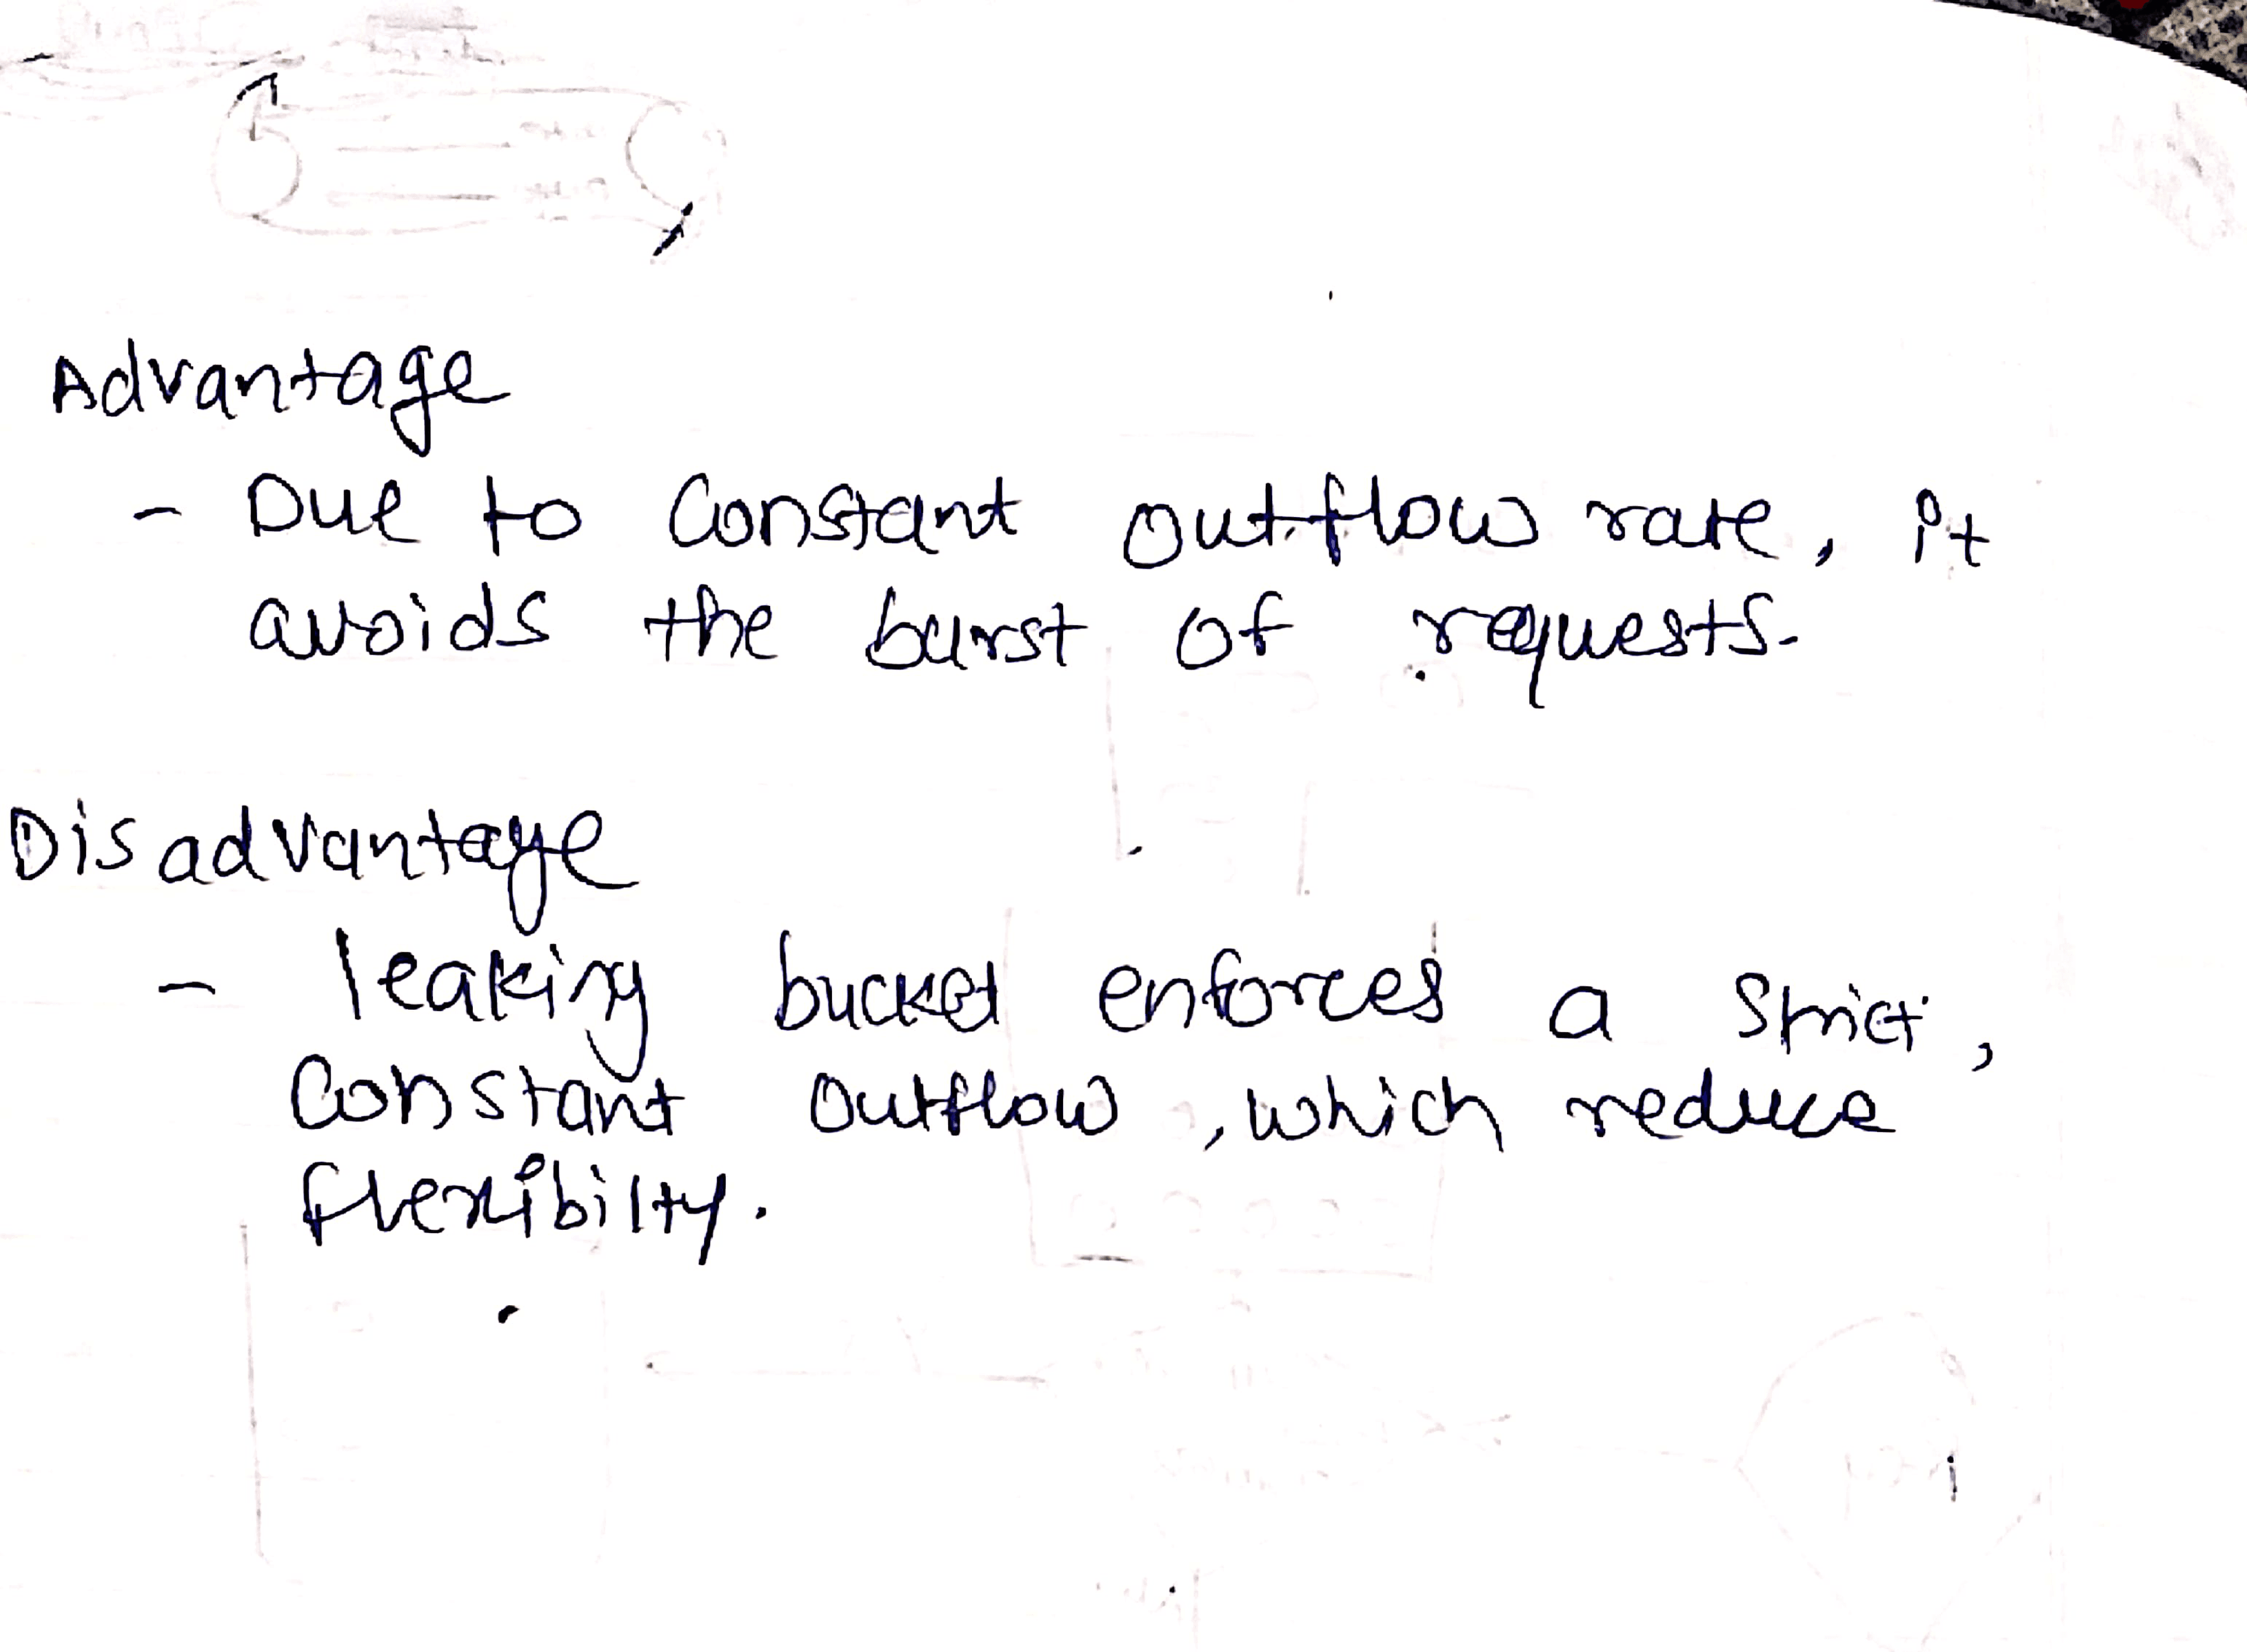 Advantage
- Due to constant outflow rate, it
avoids the burst of requests.
Disadvantage
- leaking bucket enforces a strict,
constant outflow, which reduce
flexibilty.